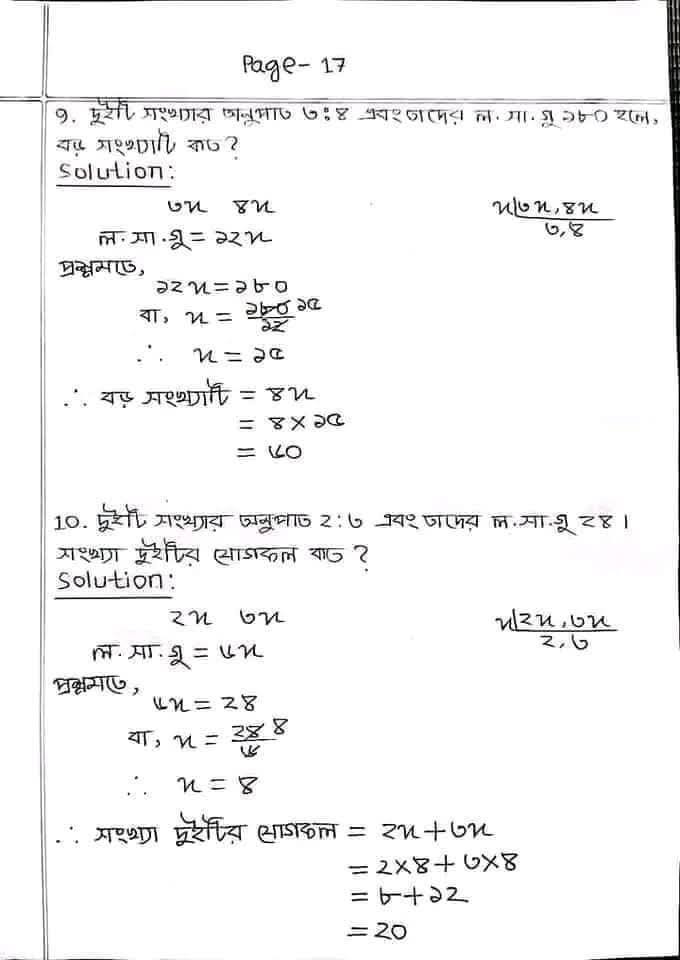 Page-17
9. দুইটি সংখ্যার অনুপাত ৩:৪ এবং তাদের ল.সা.গু ১৮০ হলে,
বড় সংখ্যাটি কত?
Solution:
৩x ৪x
x|৩x, ৪x
৩,৪
ল.সা.গু = ১২x
প্রশ্নমতে,
১২x = ১৮০
বা, x = ১৮০ ১৫
১২
∴ x = ১৫
∴ বড় সংখ্যাটি = ৪x
= ৪×১৫
= ৬০
10. দুইটি সংখ্যার অনুপাত ২:৩ এবং তাদের ল.সা.গু ২৪।
সংখ্যা দুইটির যোগফল কত?
Solution:
২x ৩x
x|২x, ৩x
২,৩
ল.সা.গু = ৬x
প্রশ্নমতে,
৬x = ২৪
বা, x = ২৪ ৪
৬
∴ x = ৪
∴ সংখ্যা দুইটির যোগফল = ২x + ৩x
= ২×৪ + ৩×৪
= ৮+১২
= ২০